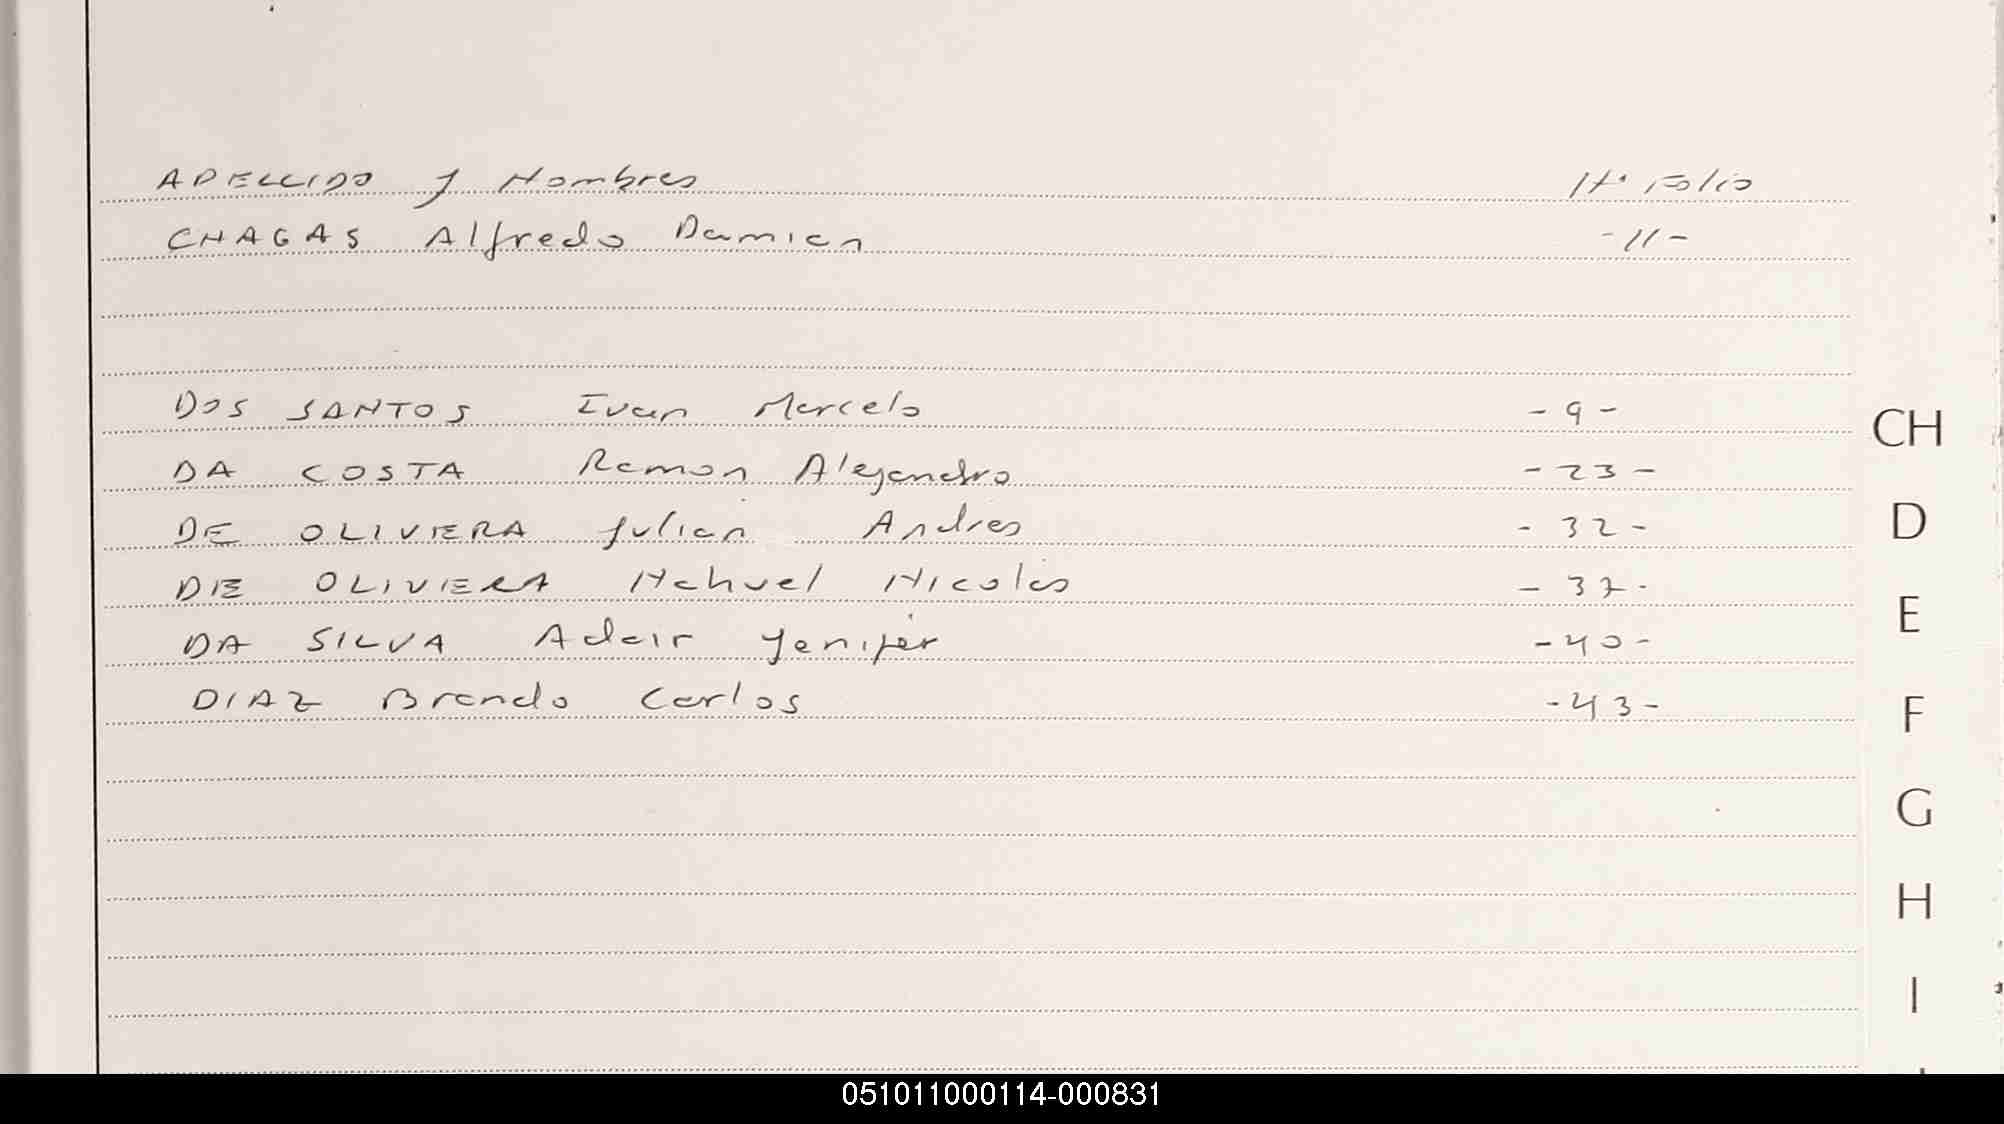 APELLIDO y Nombres N° Folio
CHAGAS Alfredo Damian -11-
DOS SANTOS Ivan Marcelo -9-
DA COSTA Ramon Alejandro -23-
DE OLIVIERA Julian Andres -32-
DE OLIVIERA Nahuel Nicolas -37-
DA SILVA Adair Yenifer -40-
DIAZ Brando Carlos -43-
CH
D
E
F
G
H
I
051011000114-000831